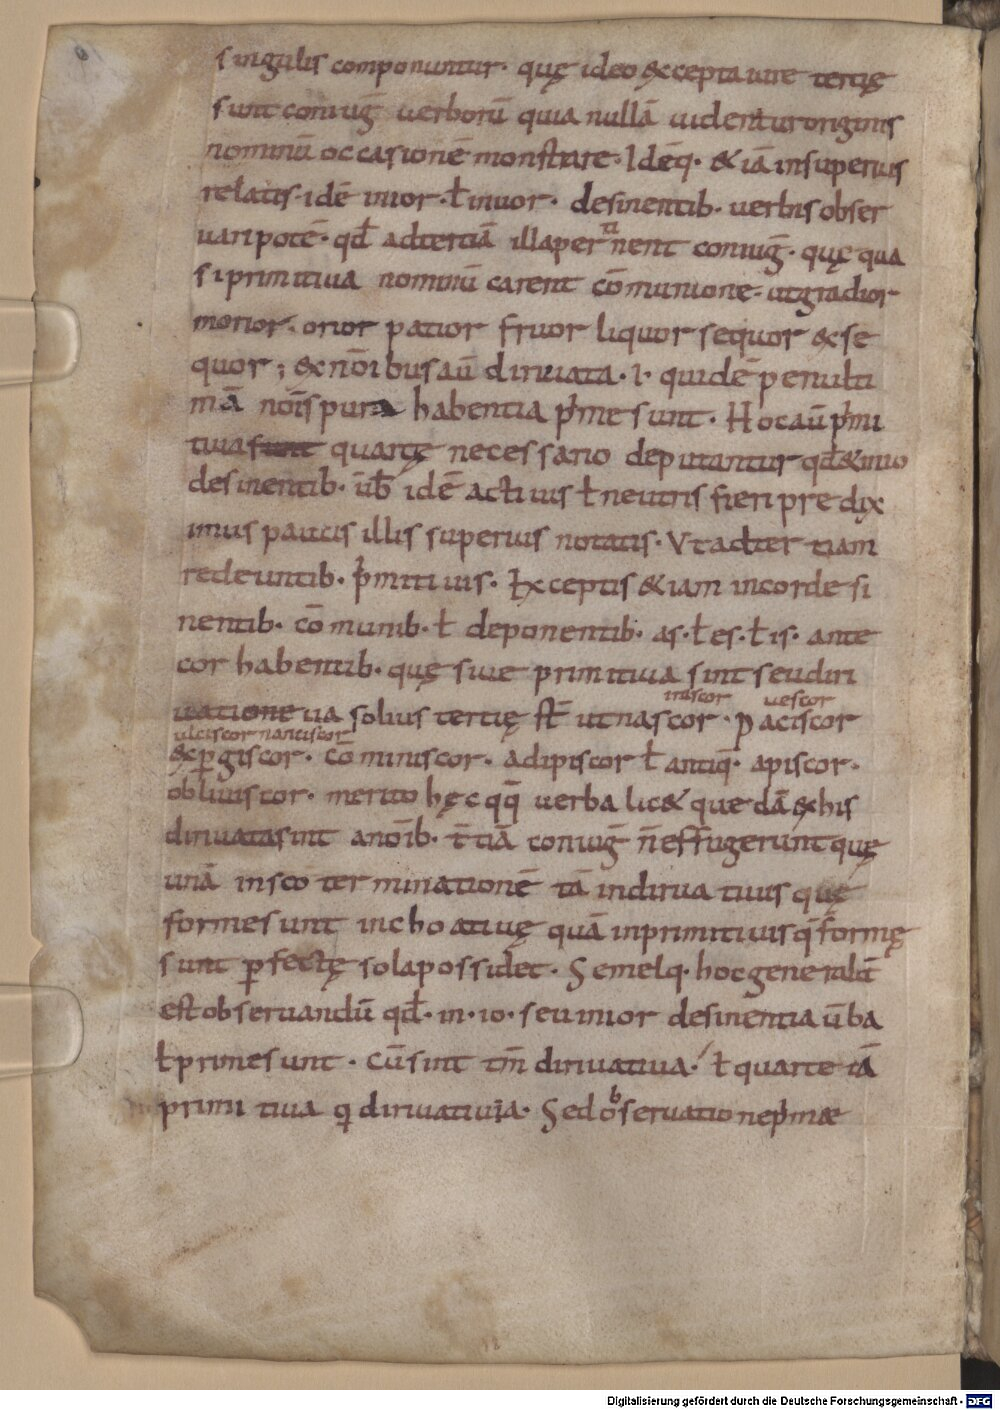 singulis componuntur. quę ideo excepta iure tertię
sunt coniug̅ uerborū quia nullā uidentur originis
nominū occasionē monstrare. Idēq. & iā insuperius
relatis. idē inior. ł inuor. desinentib. uerbis obser
uari potē. qđ adtertiā illa per
ti
nent coniug̅. quę qua
si primitiua nominū carent cōmunione. ut gradior
morior. orior patior fruor liquor sequor exse
quor; ex nōibus aū diriuata. i. quidē penulti
mā nōis pura habentia p̍me sunt. Hoc aū p̍mi
tiua sunt quartę necessario deputantur qđ & inio
desinentib. ūb idē actiuis ł neutris fieri predix
imus paucis illis superius notatis. Vt ad ter tiam
redeuntib. p̍mitiuis. Exceptis & iam incor desi
nentib. cōmunib. ł deponentib. as. ł es. ł is. ante
cor habentib. quę siue primitiua sint seu diri
iniscor uescor
uatione ua solius tertię st̄ ut nascor. paciscor
ulciscor nanciscor
exp̱giscor. cōminiscor. adipiscor ł antiq̄. apiscor.
obliuiscor. merito hęc qq̄ uerba lic& quedā exhis
diriuata sint anōib. t̄tiā coniug̅ n̄ effugerunt quę
unā insco terminationē tā indiriua tiuis quę
forme sunt inchoatiuę quā inprimitiuis q̄ formę
sunt p̱fectę sola possidet. Semelq. hoc generalit̄
est obseruandū qđ. in. io. seu inior desinentia ūba
ł prime sunt. cū sint tm̄ diriuatiua. ł quarte tā
primi tiua q̄ diriuatiuia. Sed obseruatione p̍mae
Digitalisierung gefördert durch die Deutsche Forschungsgemeinschaft - DFG